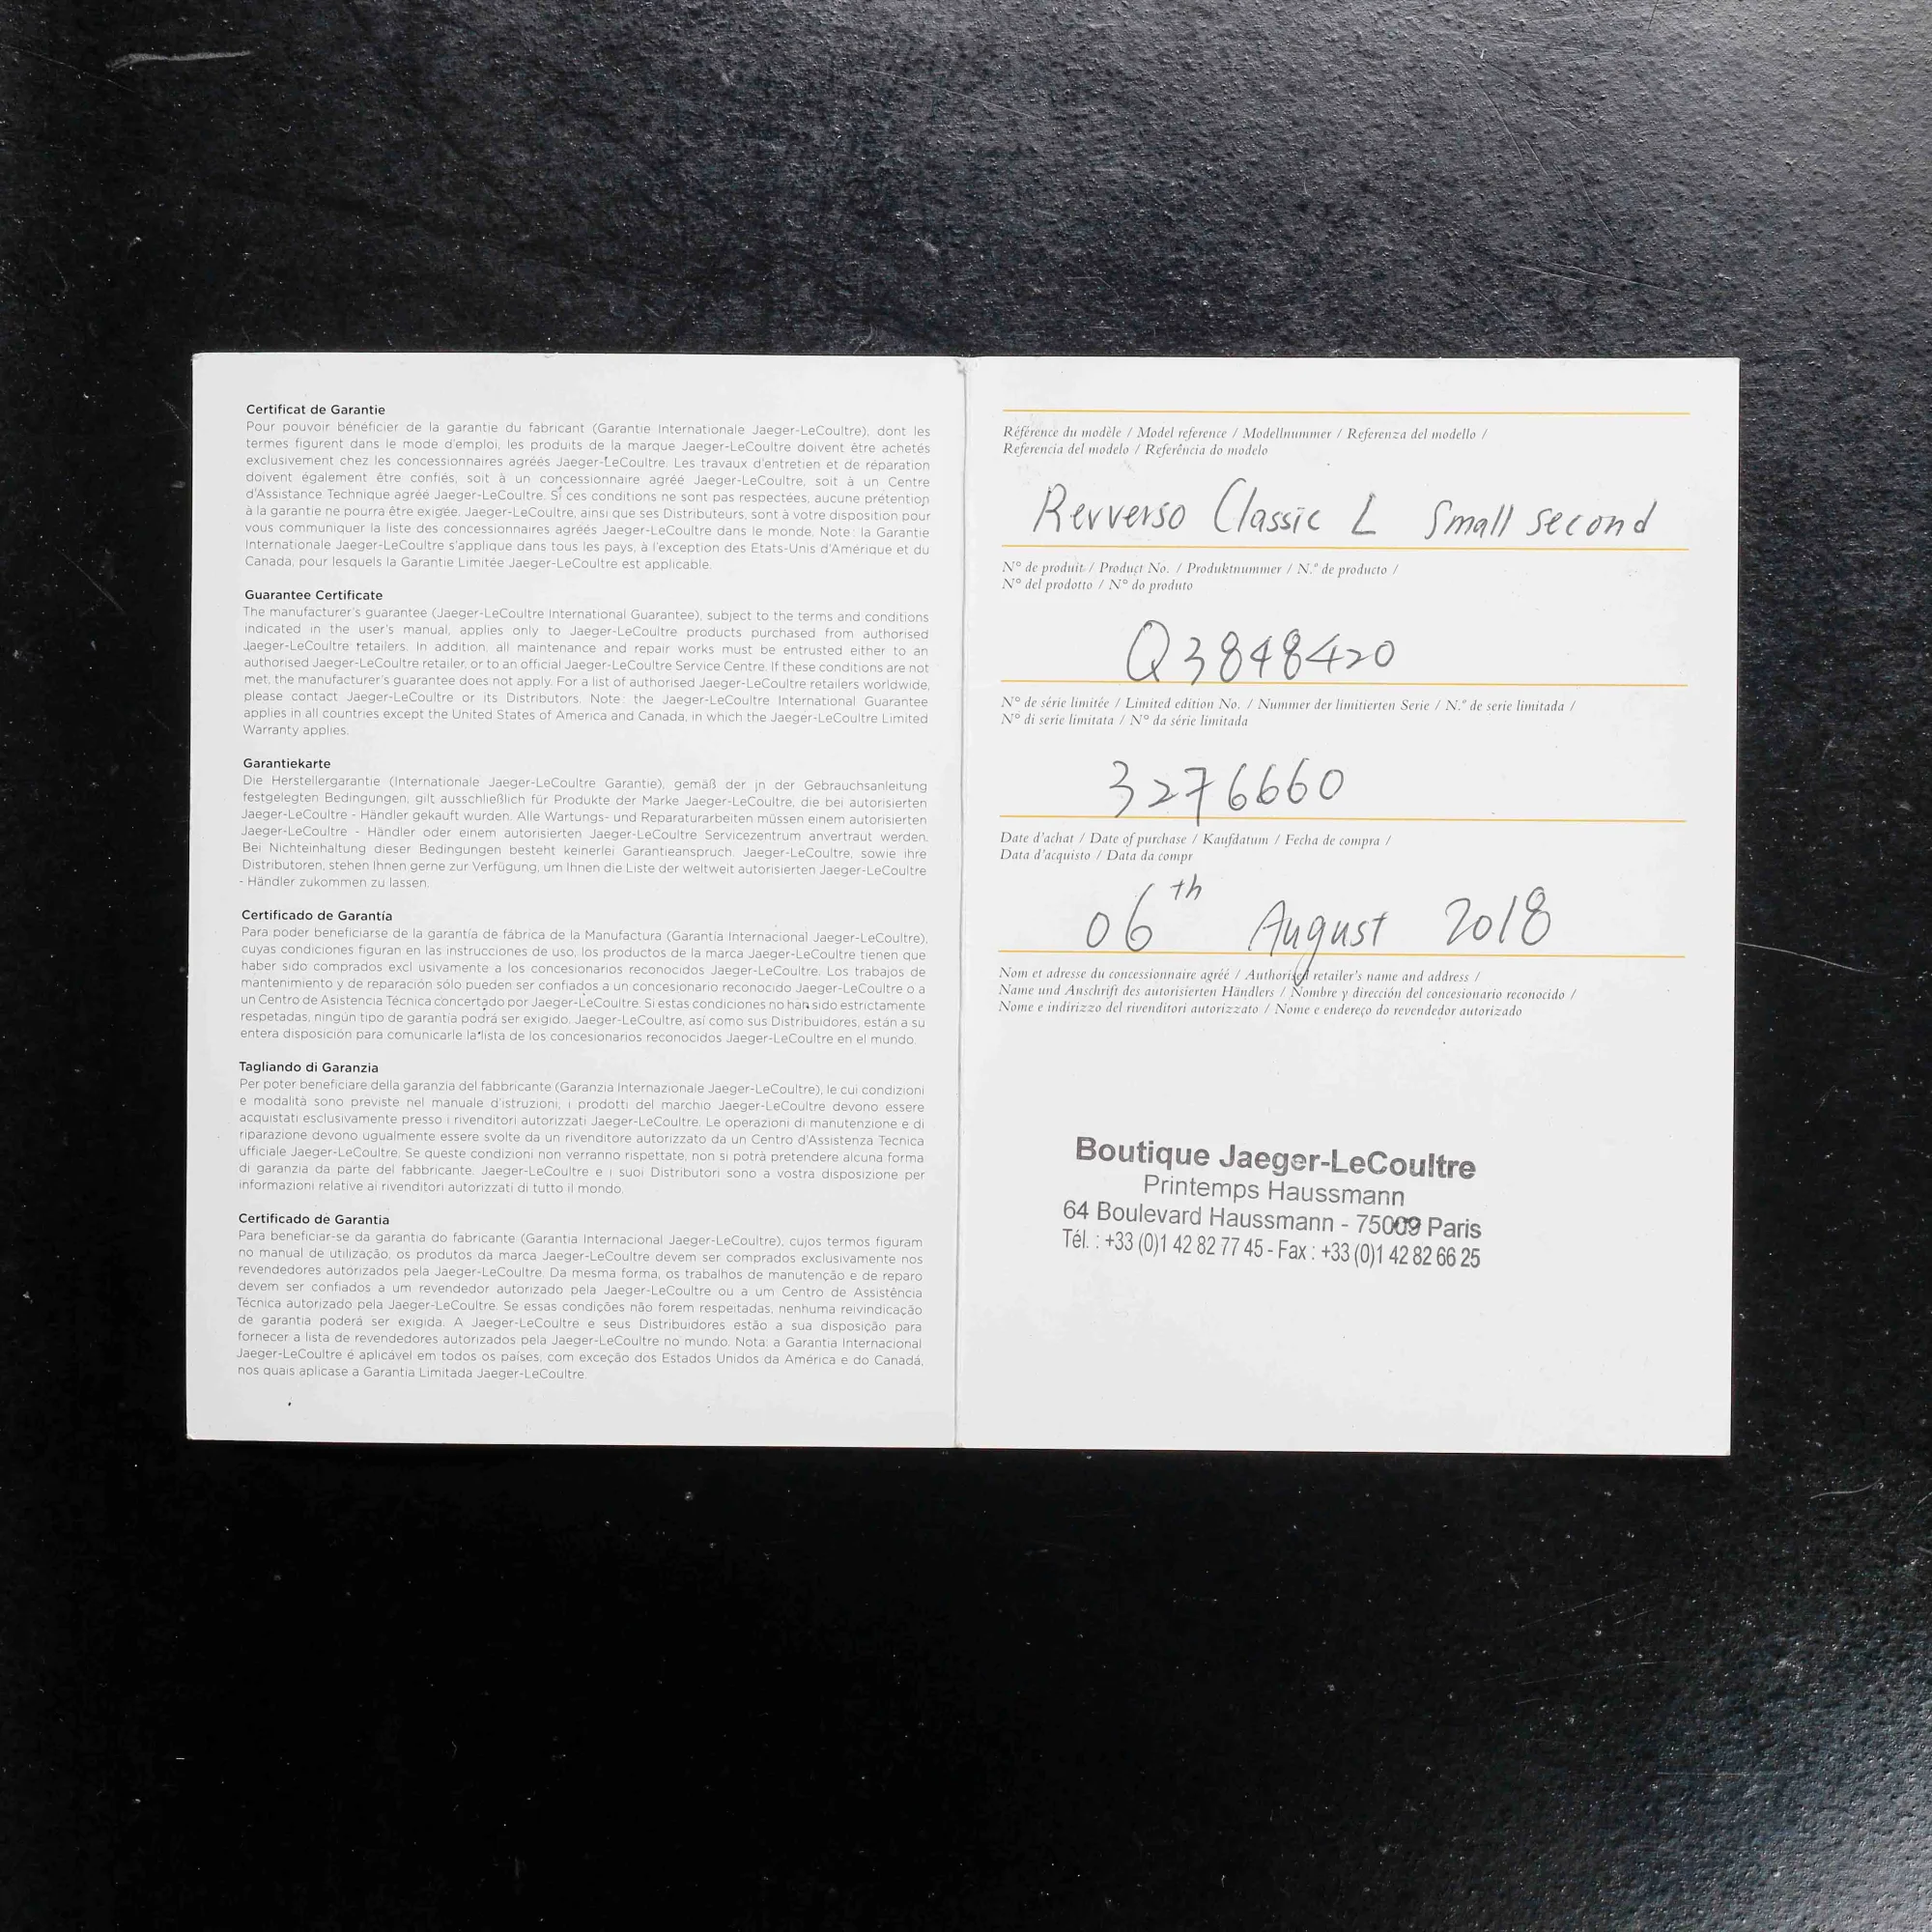 Certificat de Garantie
Pour pouvoir bénéficier de la garantie du fabricant (Garantie Internationale Jaeger-LeCoultre), dont les
termes figurent dans le mode d'emploi, les produits de la marque Jaeger-LeCoultre doivent être achetés
exclusivement chez les concessionnaires agréés Jaeger-LeCoultre. Les travaux d'entretien et de réparation
doivent également être confiés, soit à un concessionnaire agréé Jaeger-LeCoultre, soit à un Centre
d'Assistance Technique agréé Jaeger-LeCoultre. Si ces conditions ne sont pas respectées, aucune prétention
à la garantie ne pourra être exigée. Jaeger-LeCoultre, ainsi que ses Distributeurs, sont à votre disposition pour
vous communiquer la liste des concessionnaires agréés Jaeger-LeCoultre dans le monde. Note : la Garantie
Internationale Jaeger-LeCoultre s'applique dans tous les pays, à l'exception des Etats-Unis d'Amérique et du
Canada, pour lesquels la Garantie Limitée Jaeger-LeCoultre est applicable.
Guarantee Certificate
The manufacturer's guarantee (Jaeger-LeCoultre International Guarantee), subject to the terms and conditions
indicated in the user's manual, applies only to Jaeger-LeCoultre products purchased from authorised
Jaeger-LeCoultre retailers. In addition, all maintenance and repair works must be entrusted either to an
authorised Jaeger-LeCoultre retailer, or to an official Jaeger-LeCoultre Service Centre. If these conditions are not
met, the manufacturer's guarantee does not apply. For a list of authorised Jaeger-LeCoultre retailers worldwide,
please contact Jaeger-LeCoultre or its Distributors. Note : the Jaeger-LeCoultre International Guarantee
applies in all countries except the United States of America and Canada, in which the Jaeger-LeCoultre Limited
Warranty applies.
Garantiekarte
Die Herstellergarantie (Internationale Jaeger-LeCoultre Garantie), gemäß der in der Gebrauchsanleitung
festgelegten Bedingungen, gilt ausschließlich für Produkte der Marke Jaeger-LeCoultre, die bei autorisierten
Jaeger-LeCoultre - Händler gekauft wurden. Alle Wartungs- und Reparaturarbeiten müssen einem autorisierten
Jaeger-LeCoultre - Händler oder einem autorisierten Jaeger-LeCoultre Servicezentrum anvertraut werden.
Bei Nichteinhaltung dieser Bedingungen besteht keinerlei Garantieanspruch. Jaeger-LeCoultre, sowie ihre
Distributoren, stehen Ihnen gerne zur Verfügung, um Ihnen die Liste der weltweit autorisierten Jaeger-LeCoultre
- Händler zukommen zu lassen.
Certificado de Garantía
Para poder beneficiarse de la garantía de fábrica de la Manufactura (Garantía Internacional Jaeger-LeCoultre),
cuyas condiciones figuran en las instrucciones de uso, los productos de la marca Jaeger-LeCoultre tienen que
haber sido comprados excl usivamente a los concesionarios reconocidos Jaeger-LeCoultre. Los trabajos de
mantenimiento y de reparación sólo pueden ser confiados a un concesionario reconocido Jaeger-LeCoultre o a
un Centro de Asistencia Técnica concertado por Jaeger-LeCoultre. Si estas condiciones no han sido estrictamente
respetadas, ningún tipo de garantía podrá ser exigido. Jaeger-LeCoultre, así como sus Distribuidores, están a su
entera disposición para comunicarle la lista de los concesionarios reconocidos Jaeger-LeCoultre en el mundo.
Tagliando di Garanzia
Per poter beneficiare della garanzia del fabbricante (Garanzia Internazionale Jaeger-LeCoultre), le cui condizioni
e modalità sono previste nel manuale d'istruzioni, i prodotti del marchio Jaeger-LeCoultre devono essere
acquistati esclusivamente presso i rivenditori autorizzati Jaeger-LeCoultre. Le operazioni di manutenzione e di
riparazione devono ugualmente essere svolte da un rivenditore autorizzato da un Centro d'Assistenza Tecnica
ufficiale Jaeger-LeCoultre. Se queste condizioni non verranno rispettate, non si potrà pretendere alcuna forma
di garanzia da parte del fabbricante. Jaeger-LeCoultre e i suoi Distributori sono a vostra disposizione per
informazioni relative ai rivenditori autorizzati di tutto il mondo.
Certificado de Garantia
Para beneficiar-se da garantia do fabricante (Garantia Internacional Jaeger-LeCoultre), cujos termos figuram
no manual de utilização, os produtos da marca Jaeger-LeCoultre devem ser comprados exclusivamente nos
revendedores autorizados pela Jaeger-LeCoultre. Da mesma forma, os trabalhos de manutenção e de reparo
devem ser confiados a um revendedor autorizado pela Jaeger-LeCoultre ou a um Centro de Assistência
Técnica autorizado pela Jaeger-LeCoultre. Se essas condições não forem respeitadas, nenhuma reivindicação
de garantia poderá ser exigida. A Jaeger-LeCoultre e seus Distribuidores estão a sua disposição para
fornecer a lista de revendedores autorizados pela Jaeger-LeCoultre no mundo. Nota: a Garantia Internacional
Jaeger-LeCoultre é aplicável em todos os países, com exceção dos Estados Unidos da América e do Canadá,
nos quais aplicase a Garantia Limitada Jaeger-LeCoultre.
Référence du modèle / Model reference / Modellnummer / Referenza del modello /
Referencia del modelo / Referência do modelo
Revverso Classic L Small second
N° de produit / Product No. / Produktnummer / N.° de producto /
N° del prodotto / N° do produto
Q3848420
N° de série limitée / Limited edition No. / Nummer der limitierten Serie / N.° de serie limitada /
N° di serie limitata / N° da série limitada
3276660
Date d'achat / Date of purchase / Kaufdatum / Fecha de compra /
Data d'acquisto / Data da compr
06th August 2018
Nom et adresse du concessionnaire agréé / Authorised retailer's name and address /
Name und Anschrift des autorisierten Händlers / Nombre y dirección del concesionario reconocido /
Nome e indirizzo del rivenditori autorizzato / Nome e endereço do revendedor autorizado
Boutique Jaeger-LeCoultre
Printemps Haussmann
64 Boulevard Haussmann - 75009 Paris
Tél. : +33 (0)1 42 82 77 45 - Fax : +33 (0)1 42 82 66 25